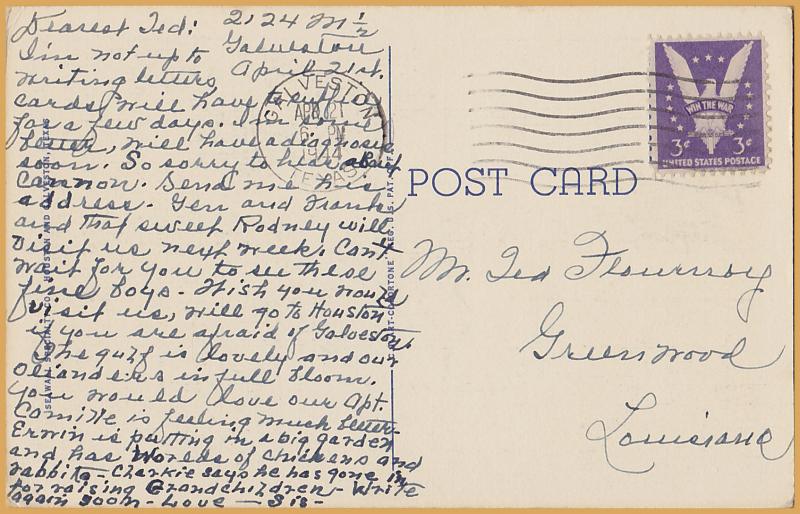 Dearest Ted:
2124 M 1/2
Galveston
April 21st.
I'm not up to
writing letters
cards will have to suffice
for a few days. I'm some
better, will have a diagnosis
soon. So sorry to hear about
Cannon. Send me his
address. Gen and Frank
and that sweet Rodney will
visit us next week. Can't
wait for you to see these
fine boys - Wish you would
visit us, will go to Houston
if you are afraid of Galveston.
The gulf is lovely and our
Oleanders in full bloom.
You would love our Apt.
Comille is feeling much better -
Erwin is putting in a big garden
and has Worlds of Chickens and
rabbits - Charkie says he has gone in
for raising Grandchildren - Write
again soon - Love - Sis -
GALVESTON
APR 21
PM
TEXAS
WIN THE WAR
3¢ 3¢
UNITED STATES POSTAGE
POST CARD
Mr. Ted Flournoy
Greenwood
Louisiana
SEAWALL SPECIALTY CO., HOUSTON AND GALVESTON, TEXAS
REG. U.S. PAT. OFF.